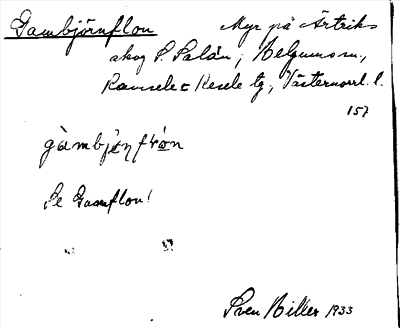 Gambjörnflon Myr på Ärtriks
skog S. Salån, Helgums sn,
Ramsele o Resele tg, Västernorrl. l.
157
gàmbjø̣ṇflón
Se Gamflon!
Sven Hiller 1933